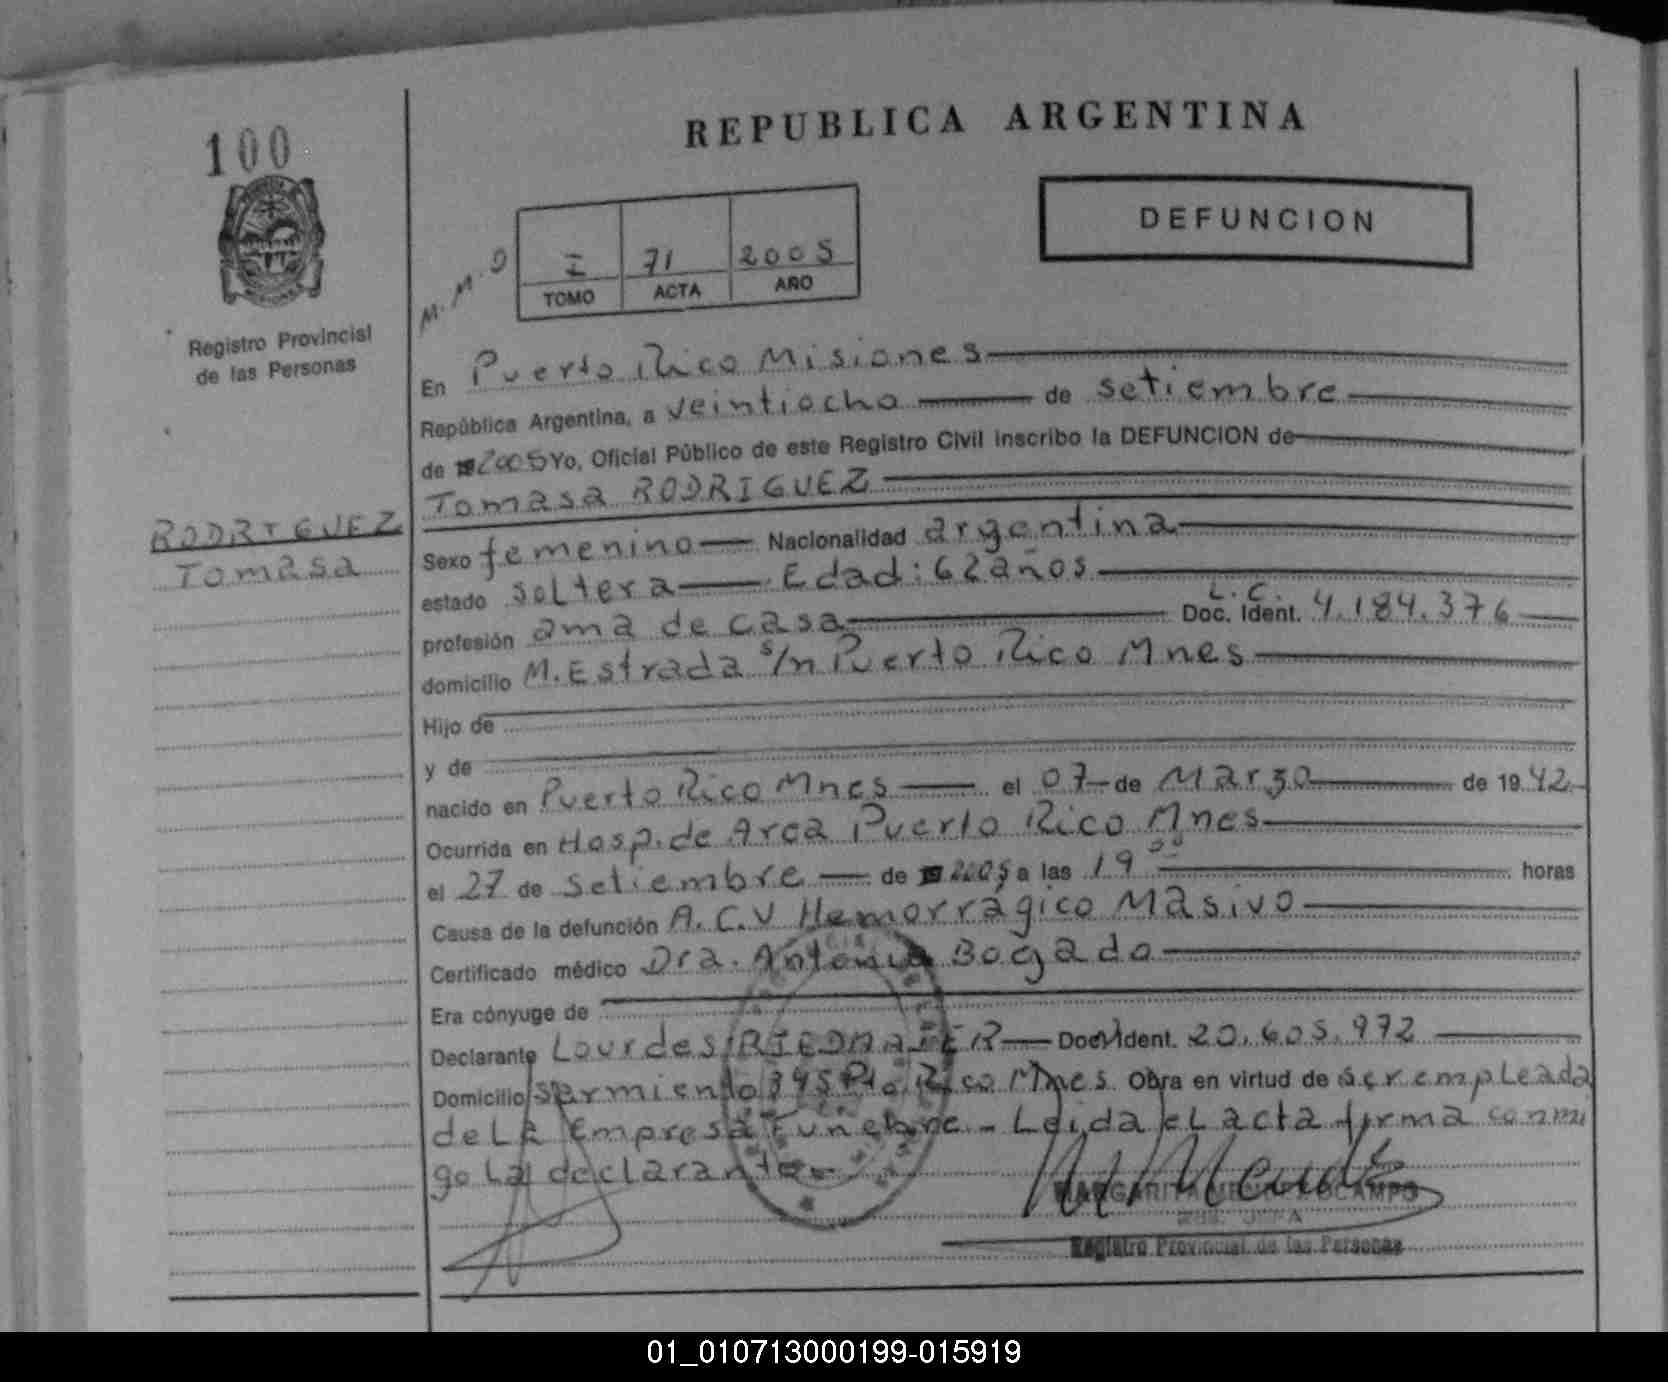 100
REPUBLICA ARGENTINA
DEFUNCION
M.M.O
I 71 2005
TOMO ACTA AÑO
Registro Provincial
de las Personas
En Puerto Rico Misiones
República Argentina, a veintiocho de setiembre
de 2005 Yo, Oficial Público de este Registro Civil inscribo la DEFUNCION de
Tomasa RODRIGUEZ
RODRIGUEZ
Tomasa
Sexo femenino Nacionalidad argentina
estado soltera Edad: 62 años
profesión ama de casa Doc. Ident. L.C. 4.184.376
domicilio M. Estrada s/n Puerto Rico Mnes
Hijo de
y de
nacido en Puerto Rico Mnes el 07 de Marzo de 1942
Ocurrida en Hosp. de Area Puerto Rico Mnes
el 27 de setiembre de 2005 a las 19 00 horas
Causa de la defunción A.C.V Hemorrágico Masivo
Certificado médico Dra. Antonia Bogado
Era cónyuge de
Declarante Lourdes Doc. Ident. 20.605.972
Domicilio Sarmiento 345 Pto Rico Mnes. Obra en virtud de ser empleada
de La Empresa Funebre - Leida el acta firma conmi
go La declarante.
MARGARITA MENDEZ OCAMPO
Registro Provincial de las Personas
01_010713000199-015919